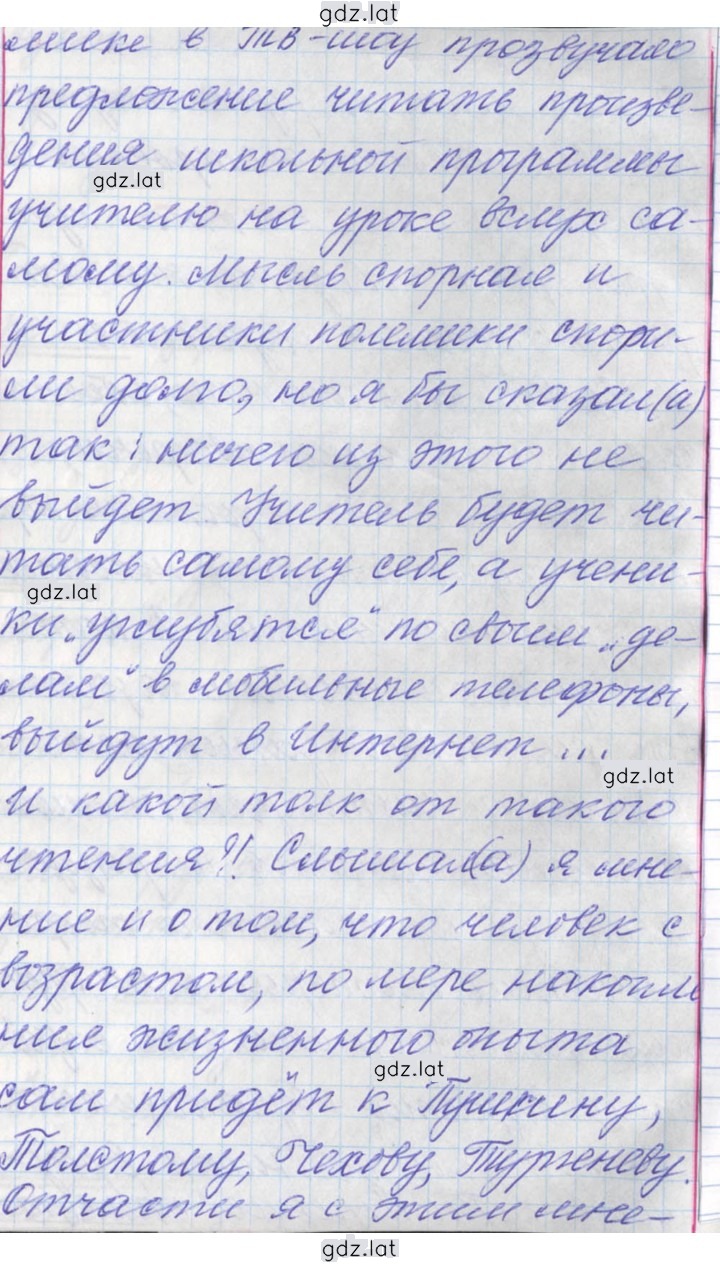 gdz.lat
мике в ТВ-шоу прозвучало
предложение читать произве-
дения школьной программы
gdz.lat
учителю на уроке вслух са-
мому. Мысль спорная и
участники полемики спори-
ли долго, но я бы сказал(а)
так: ничего из этого не
выйдет. Учитель будет чи-
тать самому себе, а учени-
gdz.lat
ки „углубятся" по своим „де-
лам" в мобильные телефоны,
выйдут в Интернет ...
gdz.lat
И какой толк от такого
чтения?! Слышал(а) я мне-
ние и о том, что человек с
возрастом, по мере накопле
ния жизненного опыта
gdz.lat
сам придёт к Пушкину,
Толстому, Чехову, Тургеневу.
Отчасти я с этим мне-
gdz.lat